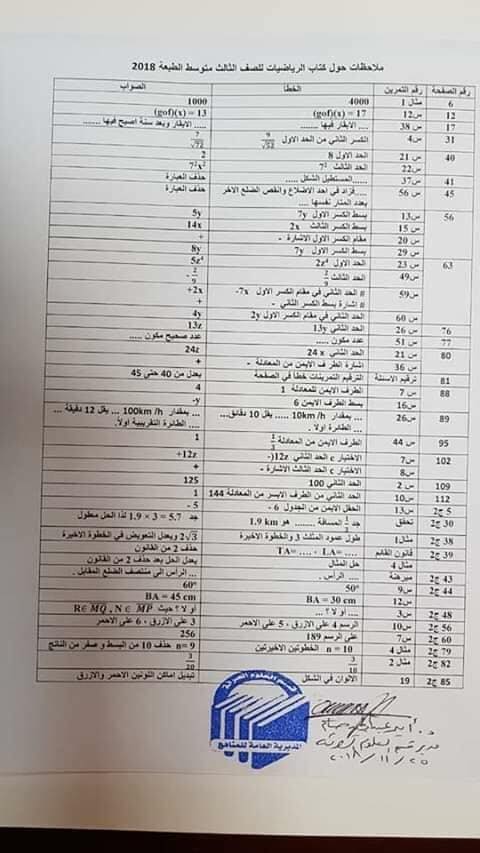 ملاحظات حول كتاب الرياضيات للصف الثالث متوسط الطبعة 2018
رقم الصفحة رقم التمرين الخطأ الصواب
6 مثال 1 4000 1000
12 س12 (gof)(x) = 17 (gof)(x) = 13
17 س 38 .... الابقار فيها ....... .... الابقار وبعد سنة اصبح فيها ......
31 س4 الكسر الثاني من الحد الاول
40 س 21 الحد الاول 8 2
س22 الحد الثالث 7² 7²x²
41 س37 ......المستطيل الشكل ..... حذف العبارة
45 س 56 ....فزاد في احد الاضلاع وانقص الضلع الاخر حذف العبارة
بعدد المتار نفسها ....
56 س13 بسط الكسر الاول 7y 5y
س 15 بسط الكسر الثالث 2x 14x
س 20 مقام الكسر الاول الاشارة - +
س 29 بسط الكسر الاول 7y 8y
63 س 23 الحد الاول 2z⁴ 5z⁴
س49 الحد الثالث 2/9 - 2/9
س59 # الحد الثاني في مقام الكسر الاول 7x- +2x
# اشارة بسط الكسر الثاني - +
س 60 الحد الثاني في مقام الكسر الاول 2y 4y
76 س 26 الحد الثاني 13y 13z
77 س 51 عدد مكون ..... عدد صحيح مكون .....
80 س 21 الحد الثاني 24 x 24z
س 36 اشارة الطرف الايمن من المعادلة - +
81 ترقيم الاسئلة الترقيم التمرينات خطأ في الصفحة يعدل من 40 حتى 45
88 س 7 الطرف الايمن للمعادلة 1 4
س16 بسط الطرف الايمن 6 -y
89 س26 ... بمقدار 10km /h ..... يقل 10 دقائق... ... بمقدار 100km /h ... يقل 12 دقيقة ...
.... الطائرة اولا . .... الطائرة التقريبية اولاً.
95 س 44 الطرف الايمن من المعادلة 1/3 1
102 س7 الاختيار c الحد الثاني 12z(- +12z
س8 الاختيار c الحد الثالث الاشارة - +
109 س 2 الحد الثاني 100 125
112 س10 الحد الثاني من الطرف الايسر من المعادلة 144 1
5 ج2 س13 الحقل الايمن من الجدول 6 - 5 -
30 ج2 تحقق جد 1/3 المسافة ....... هو 1.9 km جد 1.9 × 3 = 5.7 لذا الحل مطول
38 ج2 مثال1 طول عمود المثلث 3 والخطوة الاخيرة 2√3 ويعدل التعويض في الخطوة الاخيرة
39 ج2 قانون القائم TA=.... ، LA= .... حذف 2 من القانون
مثال 4 حل المثال يعدل الحل بعد حذف 2 من القانون
43 ج2 مبرهنة .... الرأس . ... الرأس الى منتصف الضلع المقابل .
44 ج2 س9 50° 60°
س12 BA = 30 cm BA = 45 cm
48 ج2 س3 .... أو لا ؟ ... أو لا ؟ حيث R∈ MQ , N ∈ MP
56 ج2 س10 الرسم 4 على الازرق ، 5 على الاحمر 3 على الازرق ، 6 على الاحمر
60 ج2 س7 على الرسم 189 256
79 ج2 مثال 4 n = 10 الخطوتين الاخيرتين n= 9 حذف 10 من البسط و صفر من الناتج
82 ج2 مثال 2 3/20
85 ج2 19 الألوان في الشكل تبديل اماكن اللونين الاحمر والازرق
المديرية العامة للمناهج
٢٠١٨/١١/٢٥